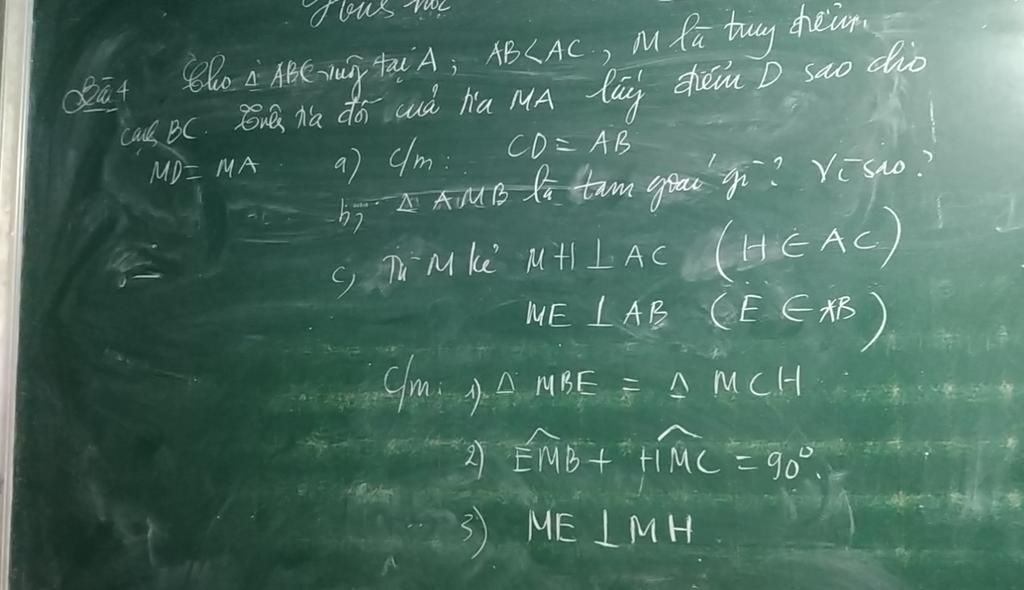 Hình học
Bài 4 Cho Δ ABC vuông tại A; AB<AC, M là trung điểm
cạnh BC. Trên tia đối của tia MA lấy điểm D sao cho
MD = MA a) C/m: CD = AB
b) Δ AMB là tam giác gì? Vì sao?
c) Từ M kẻ MH ⊥ AC (H ∈ AC)
ME ⊥ AB (E ∈ AB)
C/m: 1) Δ MBE = Δ MCH
2) \widehat{EMB} + \widehat{HMC} = 90°.
3) ME ⊥ MH